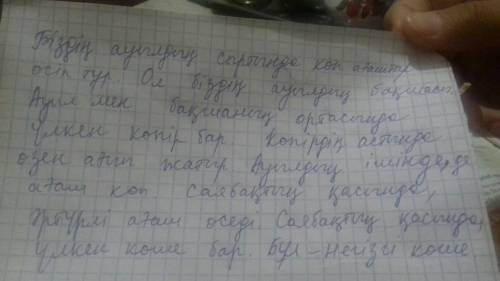 Біздің ауылдың сыртында көп ағаштар
өсіп тұр. Ол біздің ауылдың бақшасы.
Ауыл мен бақшаның ортасында
үлкен көпір бар. Көпірдің астында
өзен ағып жатыр. Ауылдың ішінде, де
ағаш көп. Саябақтың қасында,
әртүрлі ағаш өседі. Саябақтың қасында,
үлкен көше бар. Бұл – негізгі көше.